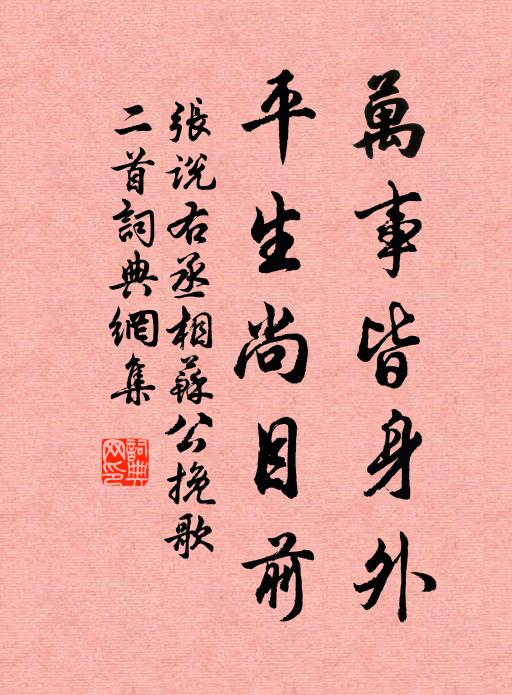 萬事皆身外
平生尚目前
張說右丞相蘇公挽歌
二首詞典網集
詞典
網印